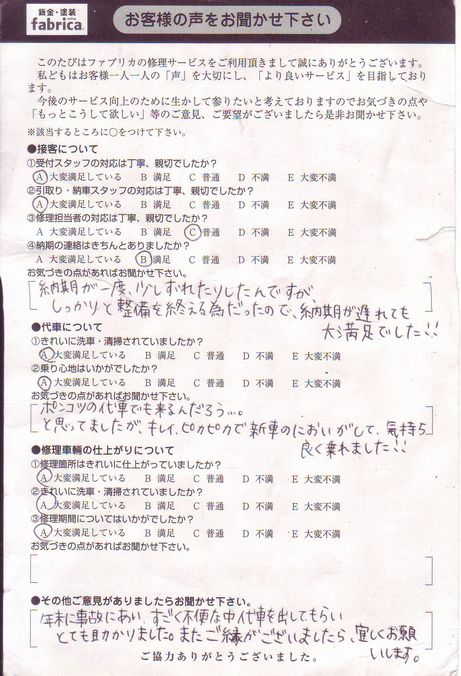 鈑金・塗装
fabrica
お客様の声をお聞かせ下さい
このたびはファブリカの修理サービスをご利用頂きまして誠にありがとうございます。
私どもはお客様一人一人の「声」を大切にし、「より良いサービス」を目指しており
ます。
今後のサービス向上のために生かして参りたいと考えておりますのでお気づきの点や
「もっとこうして欲しい」等のご意見、ご要望がございましたら是非お聞かせ下さい。
※該当するところに○をつけて下さい。
●接客について
①受付スタッフの対応は丁寧、親切でしたか？
A 大変満足している B 満足 C 普通 D 不満 E 大変不満
②引取り・納車スタッフの対応は丁寧、親切でしたか？
A 大変満足している B 満足 C 普通 D 不満 E 大変不満
③修理担当者の対応は丁寧、親切でしたか？
A 大変満足している B 満足 C 普通 D 不満 E 大変不満
④納期の連絡はきちんとありましたか？
A 大変満足している B 満足 C 普通 D 不満 E 大変不満
お気づきの点があればお聞かせ下さい。
納期が一度、少しずれたりしたんですが、
しっかりと整備を終える為だったので、納期が遅れても
大満足でした!!
●代車について
①きれいに洗車・清掃されていましたか？
A 大変満足している B 満足 C 普通 D 不満 E 大変不満
②乗り心地はいかがでしたか？
A 大変満足している B 満足 C 普通 D 不満 E 大変不満
お気づきの点があればお聞かせ下さい。
ポンコツの代車でも来るんだろう…。
と思ってましたが、キレイ、ピカピカで新車のにおいがして、気持ち
良く乗れました!!
●修理車輌の仕上がりについて
①修理箇所はきれいに仕上がっていましたか？
A 大変満足している B 満足 C 普通 D 不満 E 大変不満
②きれいに洗車・清掃されていましたか？
A 大変満足している B 満足 C 普通 D 不満 E 大変不満
③修理期間についてはいかがでしたか？
A 大変満足している B 満足 C 普通 D 不満 E 大変不満
お気づきの点があればお聞かせ下さい。
●その他ご意見がありましたらお聞かせ下さい。
年末に事故にあい、すごく不便な中代車を出してもらい
とても助かりました。またご縁がございましたら、宜しくお願
いします。
ご協力ありがとうございました。